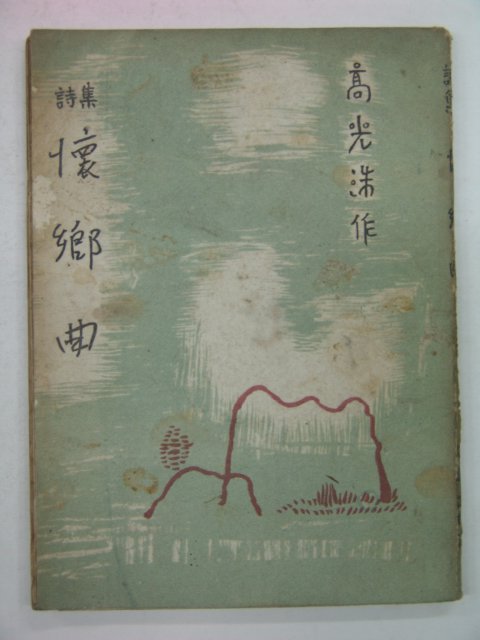 高光洙作
詩集
懷鄕曲